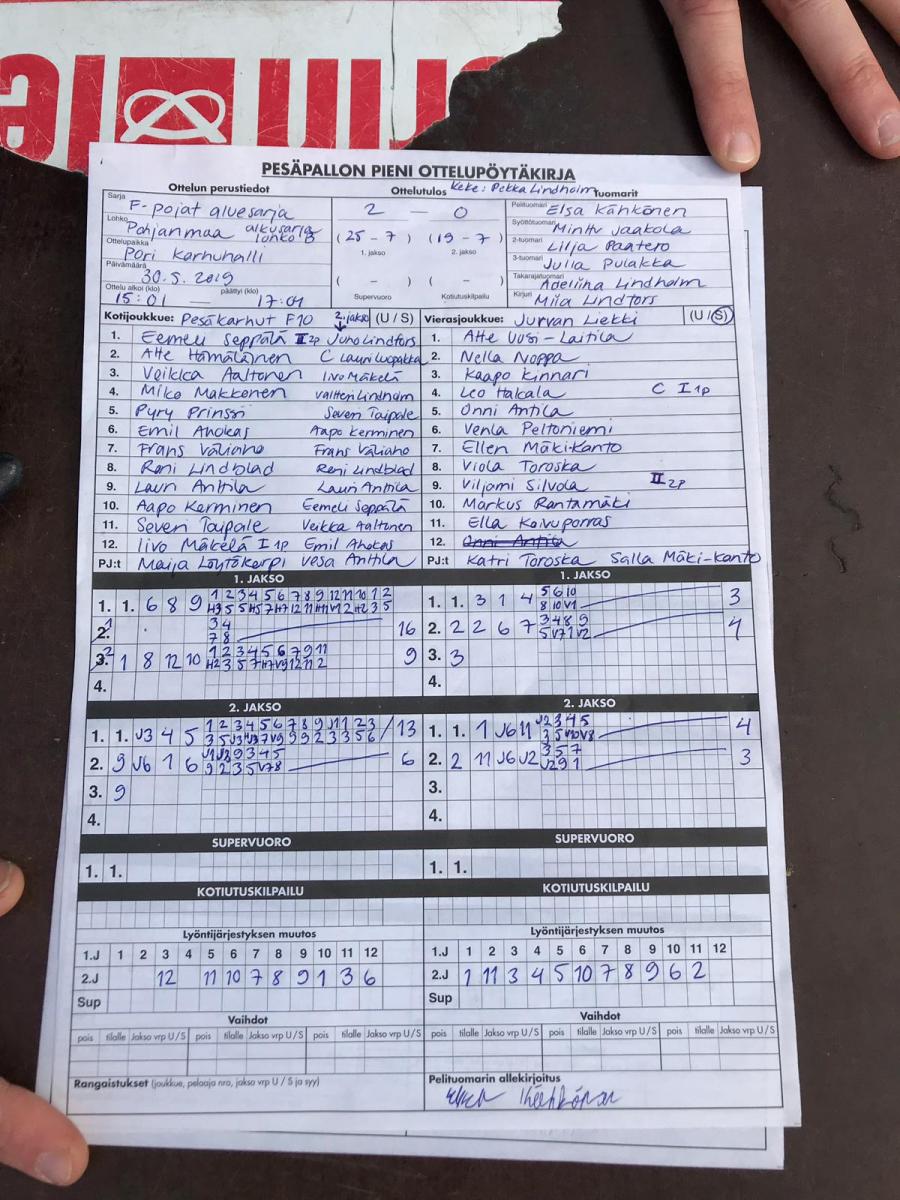 PESÄPALLON PIENI OTTELUPÖYTÄKIRJA
Ottelun perustiedot
Sarja
F-pojat aluesarja
Lohko
Pohjanmaa alkusarja lohko B
Ottelupaikka
Pori Karhuhalli
Päivämäärä
30.5.2019
Ottelu alkoi (klo) päättyi (klo)
15:01 — 17:01
Ottelutulos Keke: Pekka Lindholm
2 — 0
(25 - 7) (19 - 7)
1. jakso 2. jakso
( - ) ( - )
Supervuoro Kotiutuskilpailu
Tuomarit
Pelituomari Elsa Kähkönen
Syöttötuomari Minttu Jaakola
2-tuomari Lilja Paatero
3-tuomari Julia Pulakka
Takarajatuomari Adeliina Lindholm
Kirjuri Miia Lindfors
Kotijoukkue: Pesäkarhut F10 2. jakso (U / S)
1. Eemeli Seppälä II 2p Juho Lindfors
2. Atte Hämäläinen C Lauri Lupakka
3. Veikka Aaltonen Iivo Mäkelä
4. Miko Makkonen Valtteri Lindholm
5. Pyry Prinssi Severi Taipale
6. Emil Ahokas Aapo Kerminen
7. Frans Väliaho Frans Väliaho
8. Roni Lindblad Roni Lindblad
9. Lauri Anttila Lauri Anttila
10. Aapo Kerminen Eemeli Seppälä
11. Severi Taipale Veikka Aaltonen
12. Iivo Mäkelä I 1p Emil Ahokas
PJ:t Maija Löytökorpi Vesa Anttila
Vierasjoukkue: Jurvan Liekki (U / S)
1. Atte Uusi-Laitila
2. Nella Noppa
3. Kaapo Kinnari
4. Leo Hakala C I 1p
5. Onni Antila
6. Venla Peltoniemi
7. Ellen Mäki-Kanto
8. Viola Toroska
9. Viljami Silvola II 2p
10. Markus Rantamäki
11. Ella Koivuporras
12. Onni Antila
PJ:t Katri Toroska Salla Mäki-Kanto
1. JAKSO
1. 1. 6 8 9
2. 16
3. 1 8 12 10 9
4.
1. JAKSO
1. 1. 3 1 4 3
2. 2 2 6 7 4
3. 3
4.
2. JAKSO
1. 1. J3 4 5 13
2. 9 J6 1 6 6
3. 9
4.
2. JAKSO
1. 1. 1 J6 11 4
2. 2 11 J6 J2 3
3.
4.
SUPERVUORO
1. 1.
SUPERVUORO
1. 1.
KOTIUTUSKILPAILU
KOTIUTUSKILPAILU
Lyöntijärjestyksen muutos
1.J 1 2 3 4 5 6 7 8 9 10 11 12
2.J 12 11 10 7 8 9 1 3 6
Sup
Lyöntijärjestyksen muutos
1.J 1 2 3 4 5 6 7 8 9 10 11 12
2.J 1 11 3 4 5 10 7 8 9 6 2
Sup
Vaihdot
pois tilalle Jakso vrp U / S pois tilalle Jakso vrp U / S pois tilalle Jakso vrp U / S
Vaihdot
pois tilalle Jakso vrp U / S pois tilalle Jakso vrp U / S pois tilalle Jakso vrp U / S
Rangaistukset (joukkue, pelaaja nro, jakso vrp U / S ja syy)
Pelituomarin allekirjoitus
Elsa Kähkönen